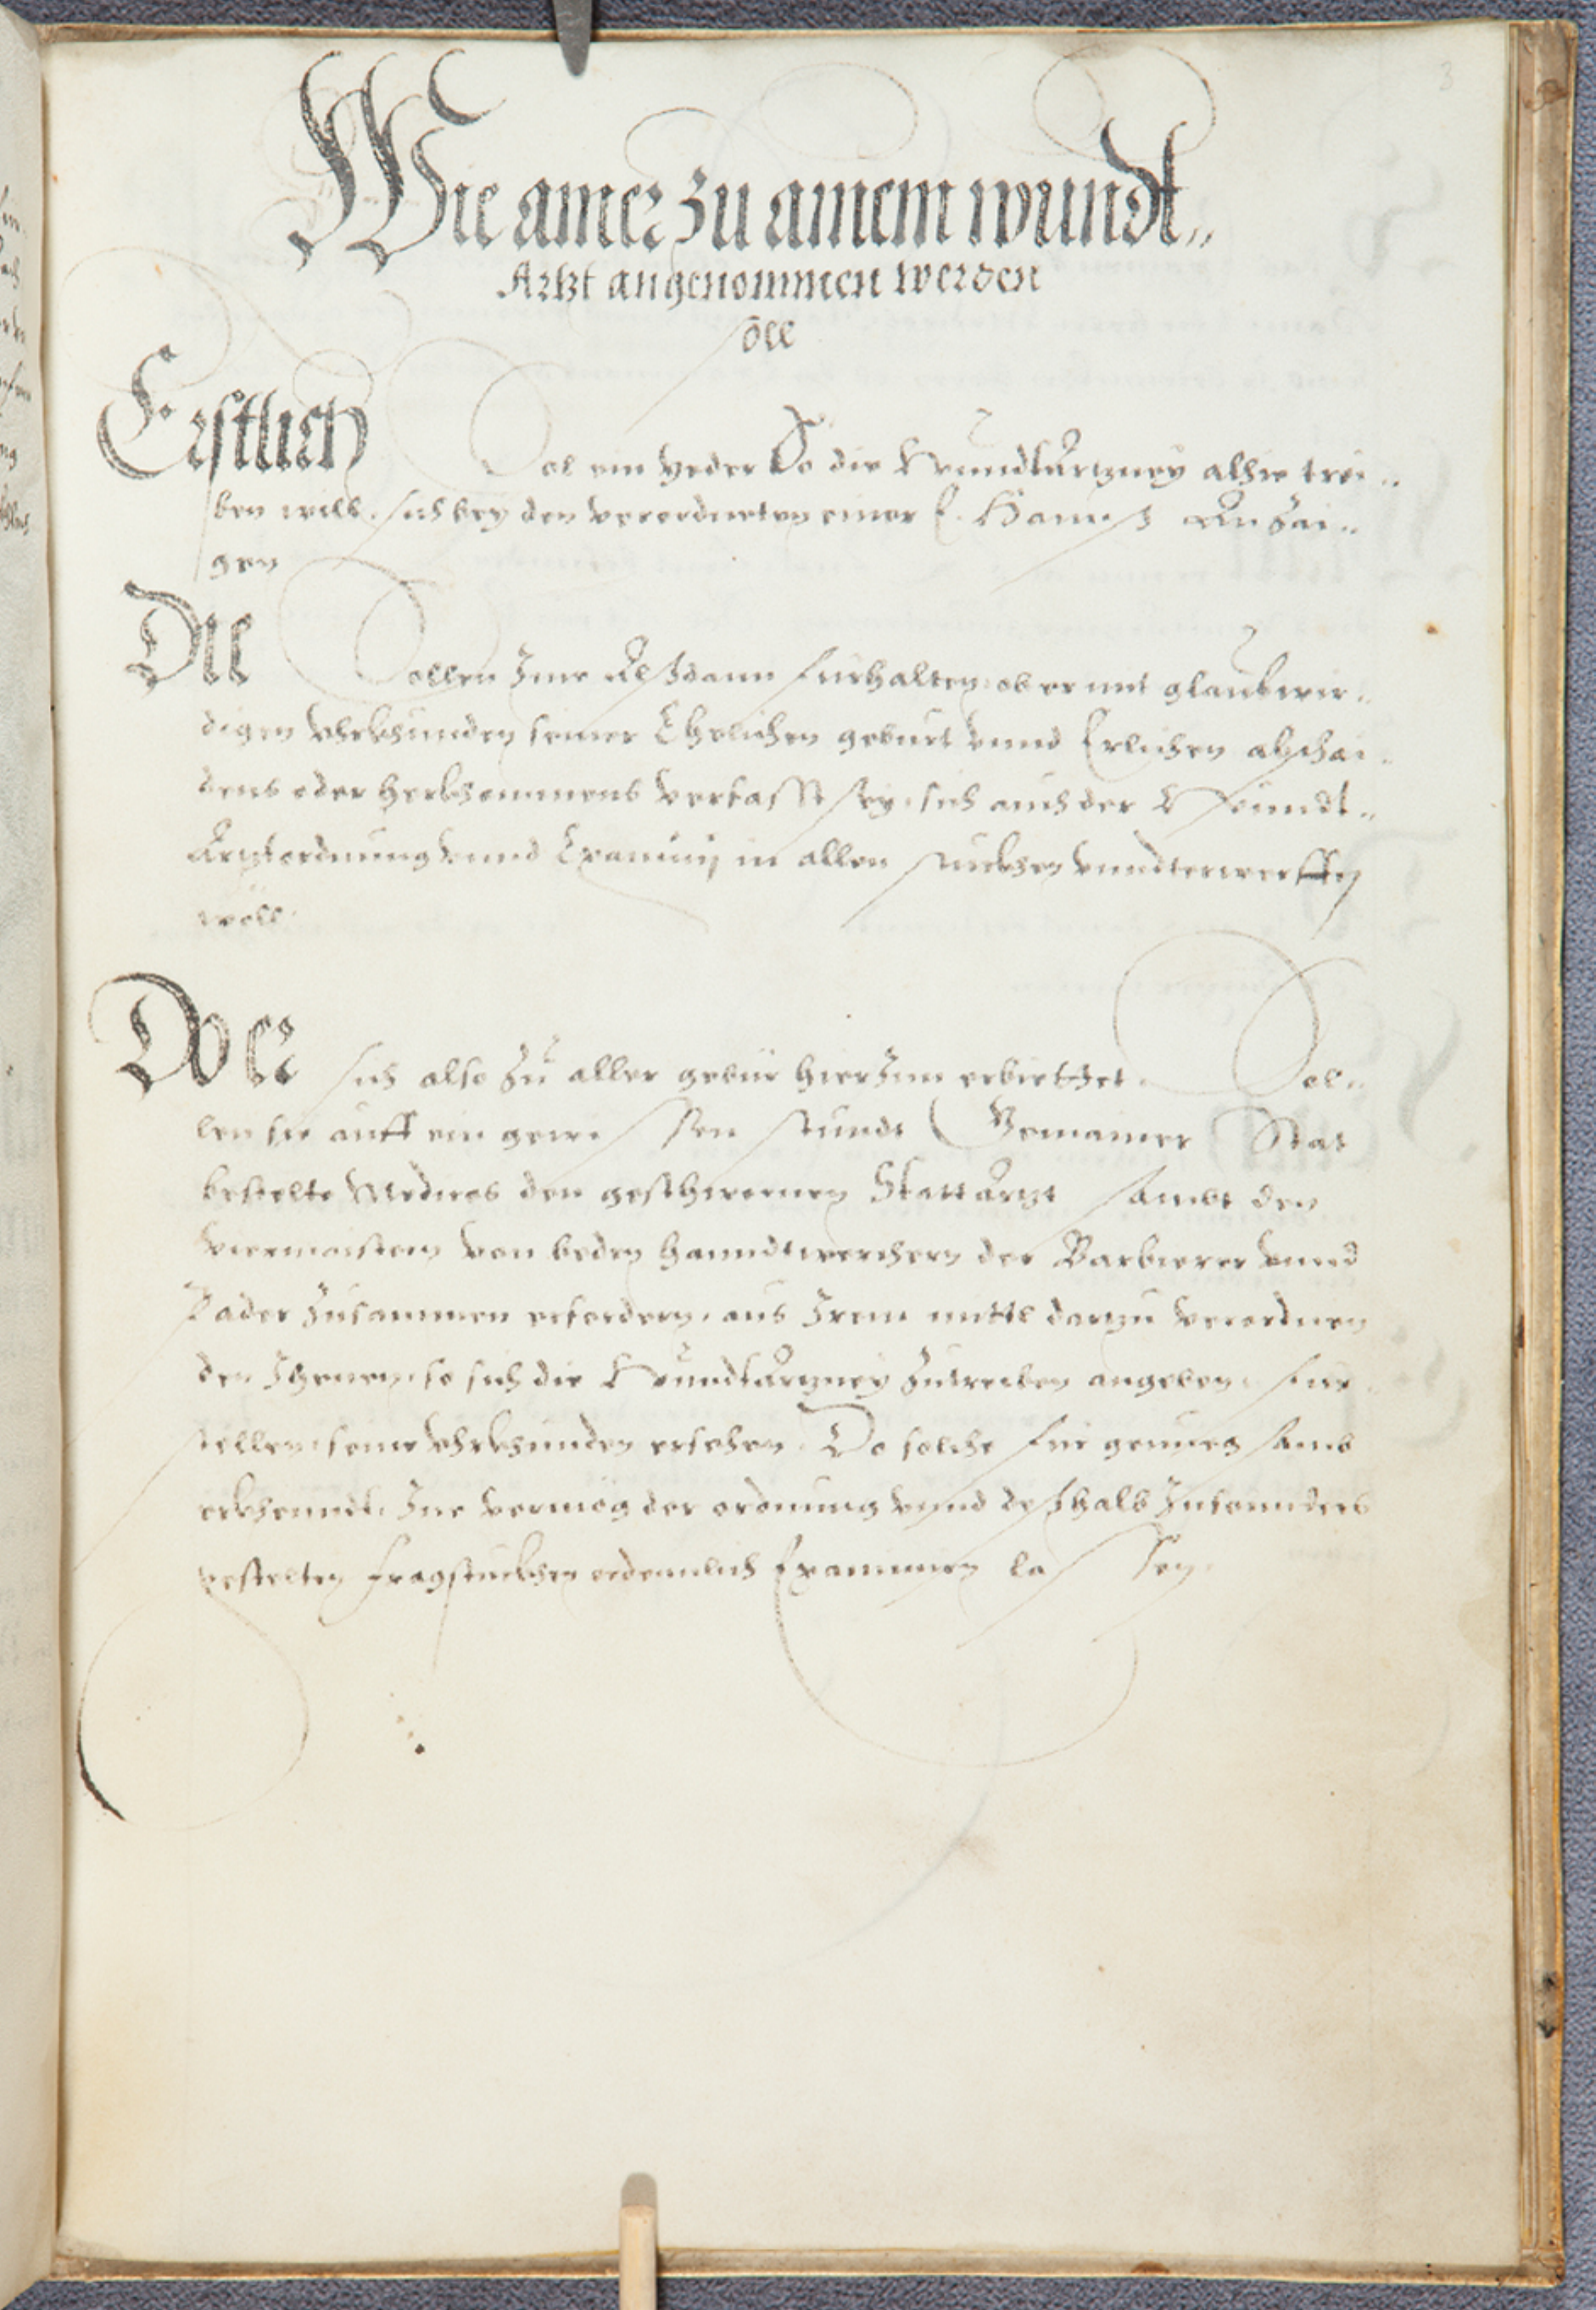 3
Wie ainer zu ainem wundt„
Artzt angenommen werden
soll
Erstlich Sol ein yeder So die Wundtartzney alhie trei„
ben will, sich bey den verordneten einer E. Hannß Anzai„
gen
Die Sollen Ime Alßdann fürhalten, ob er mit glaubwir„
digen Vhrkhunden seiner Ehelichen geburt vnnd Erlichen abschai„
dens oder herkhommens verfasst sey, sich auch der Wundt„
Artzt ordnung vnnd Examinj in allen stuckhen vnndterwerffen
wöll.
Do Er sich also zu aller gebür hierinn erbiettet. Sol„
len sie auff ein gewissen stundt Gemainer Stat
bestelte Medicos den geschwornen Stattartzt sambt den
Viermaistern von beden hanndtwerchern der Barbierer vnnd
Pader zusammen erfordern, aus Irem mittl darzu verordnen
den Ihenen, so sich die Wundtartzney zutreiben angeben, für„
stellen, seine Vhrkhunden ersehen. Do solche für genuegsamb
erkhenndt, Ine vermög der ordnung vnnd deßhalb Insonnders
gestelten fragstuckhen ordennlich Examiniern lassen.